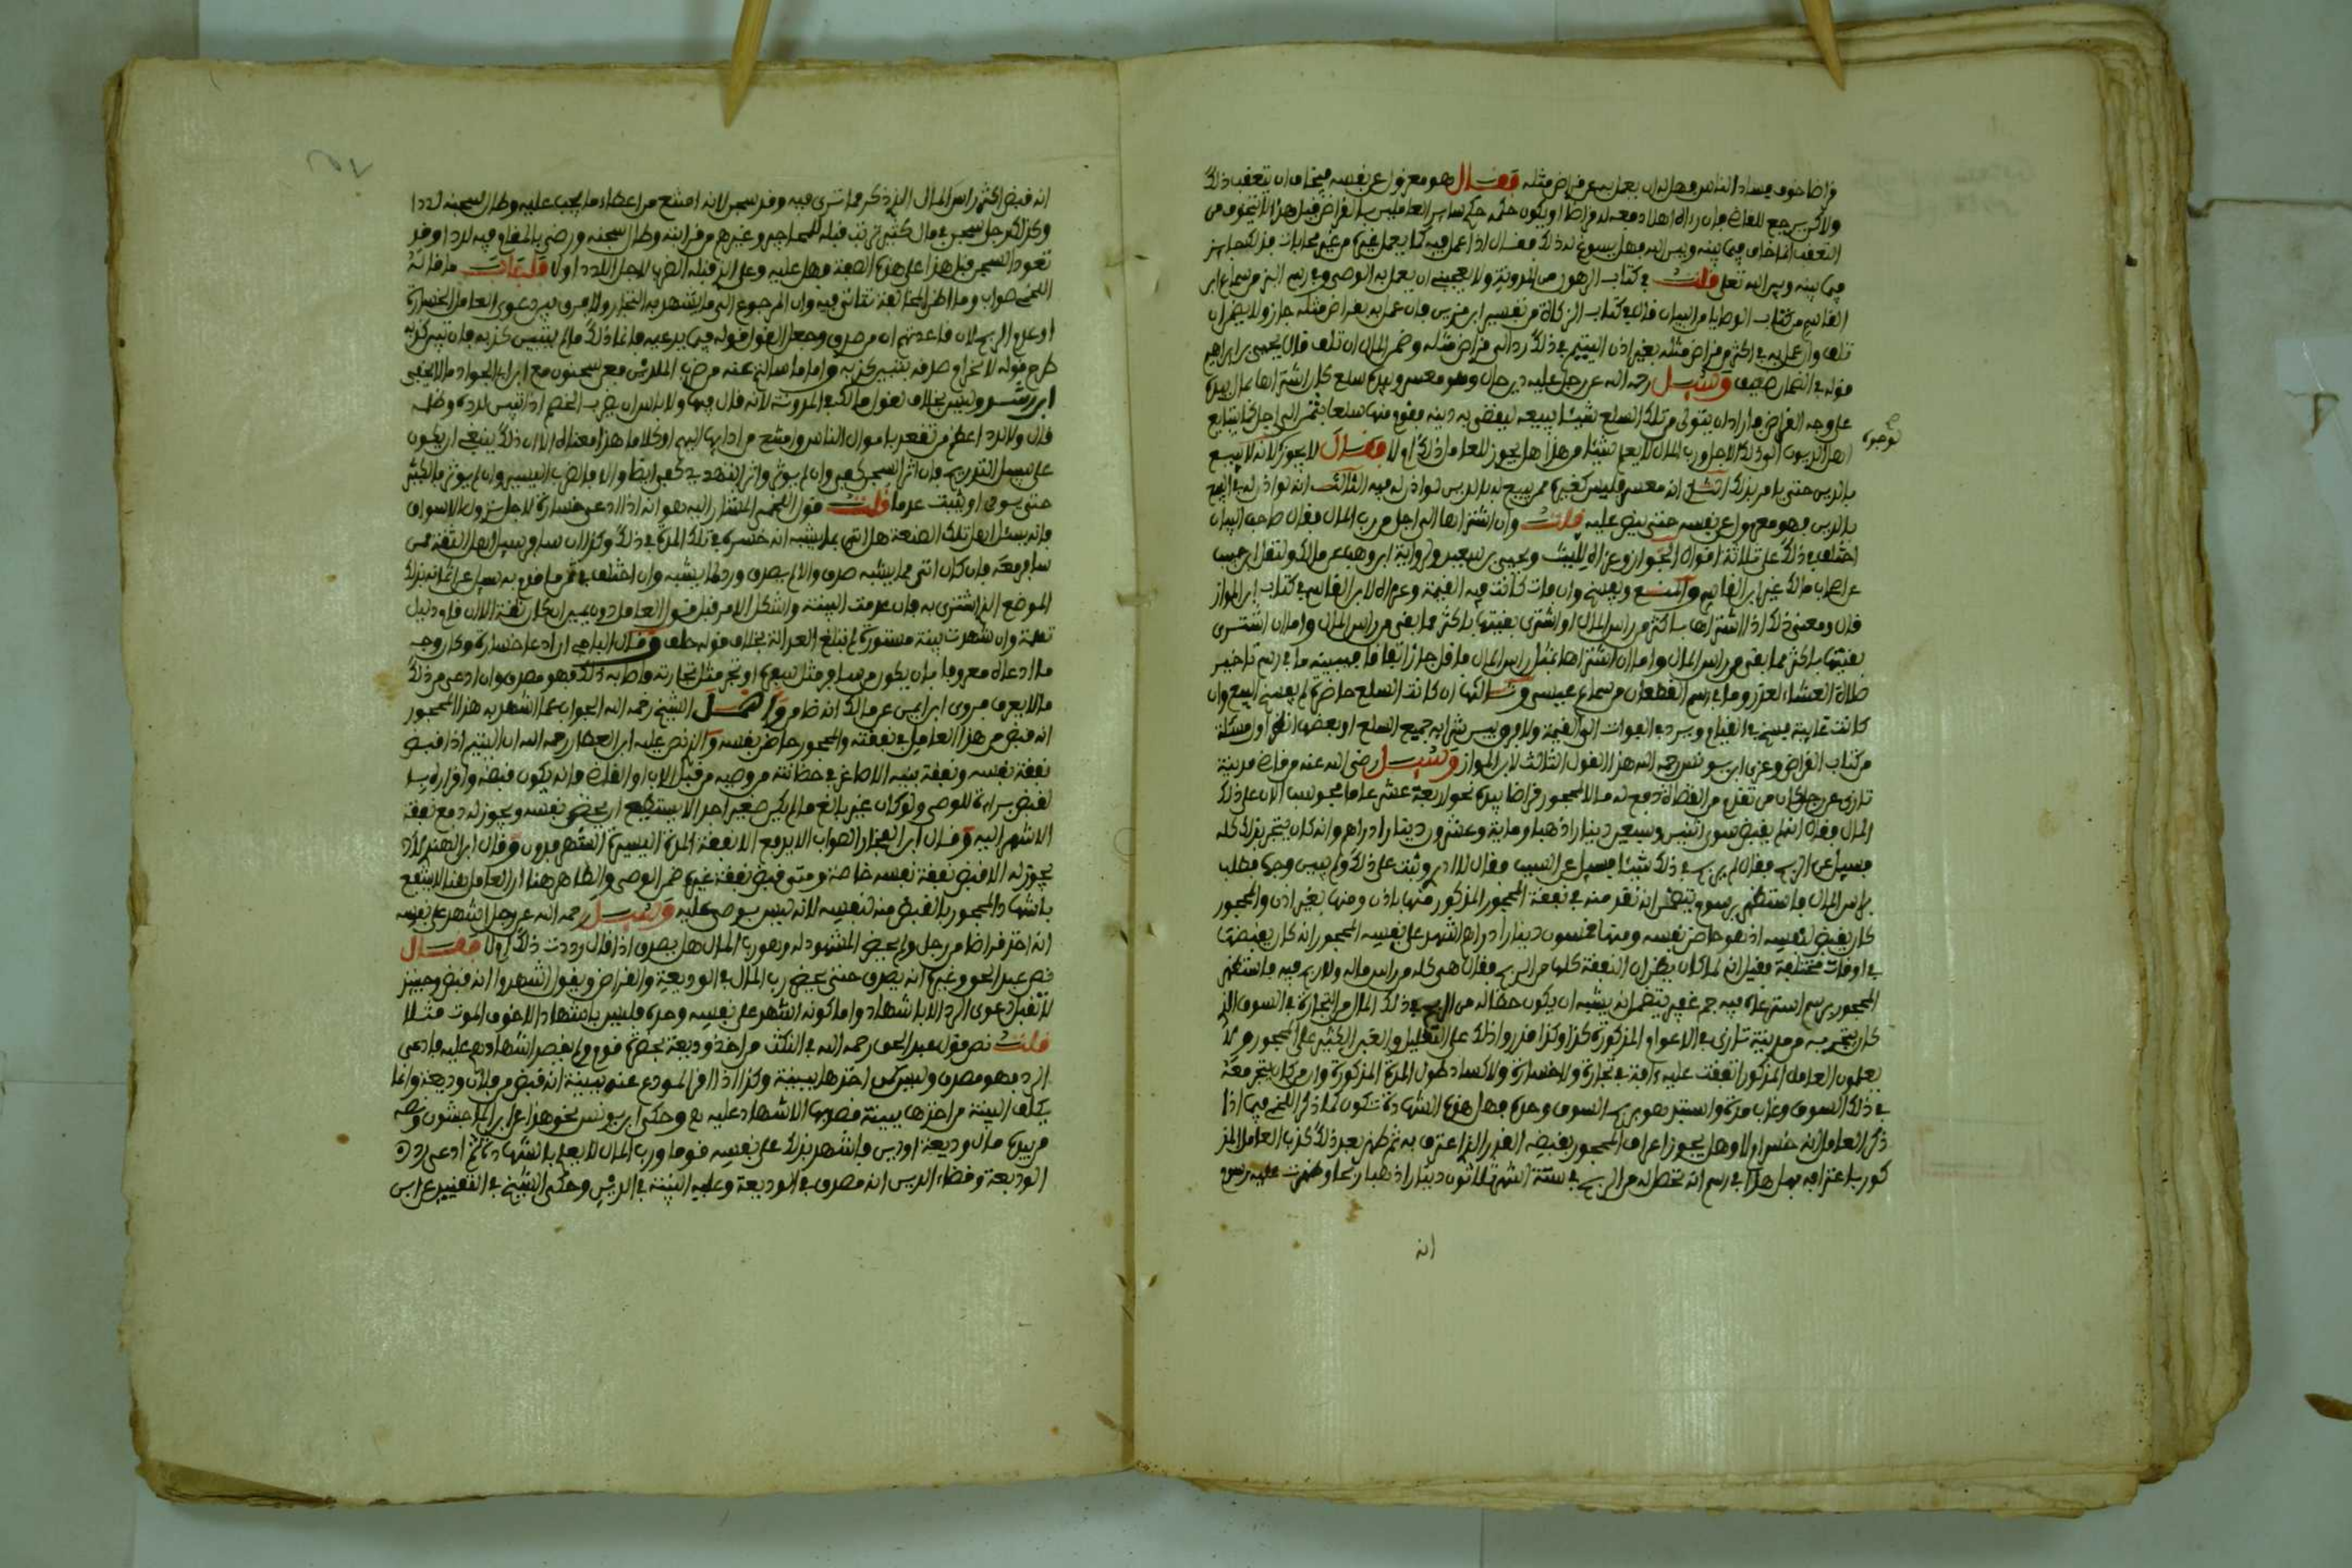 قراضا خوف فساد الناس وهل له ان يعمل به عن قراض مثله فقال هو معزول عن نفسه فيخاف ان يتعقب ذلك
ولاكن يرجع للقاضي فان رءاه اهلا دفعه له قراضا ويكون حكمه حكم ساير العاملين بالقراض قيل هذا انما يتخوف من
التعقب انما خاف فيما بينه وبين الله فهل يسوغ له ذلك فقال اذا عمل فيه كما يعمل غيره من غير محابات فذلك جايز
فيما بينه وبين الله تعلى قلت في كتاب الرهون من المدونة ولا يعجبني ان يعمل به الوصي وفي رسم البز من سماع ابن
القاسم من كتاب الوصايا من البيان قال في كتاب الزكاة من تفسير ابن مزين فان عمل به بقراض مثله جاز ولا يضمن ان
تلف وان عمل به في اكثر من قراض مثله بغير اذن اليتيم في ذلك رد الى قراض مثله وضمن المال ان تلف قال يحيى بن ابراهيم
قوله في الضمان ضعيف وسئل رحمه الله عن رجل عليه دين حال وهو معسر وبيده سلع كان اشتراها بمال بيده
على وجه القراض فاراد ان يتولى من تلك السلع شيئا يبيعه ليقضي به دينه فقوم منها سلعا بثمن الى اجل كما يبتاع
اهل الديون الى ذلك الاجل ورب المال لا يعلم شيئا من هذا هل يجوز للعامل ذلك ام لا فقال لا يجوز لانه لا يبيع
توجره
بالدين حتى يامر بذلك انه معسر فليس كغيره ممن يبيع له بالدين لو اذن له فيه الثالث انه لو اذن له في البيع
بالدين فهو معزول عن نفسه حتى ينص عليه قلت وان اشتراها الى اجل من رب المال فقال صاحب البيان
اختلف في ذلك على ثلاثة اقوال الجواز وعزاه لليث ويحيى بن سعيد ورواية ابن وهب عن مالك ولنقل ابن حبيب
عن اصحاب مالك غير ابن القاسم والمنع ويفسخ وان فات كانت فيه القيمة وعزاه لابن القاسم في كتاب ابن المواز
قال ومعنى ذلك اذا اشتراها باكثر من راس المال او اشترى بقيتها باكثر مما بقي من راس المال واما ان اشترى
بقيتها باكثر مما بقي من راس المال واما ان اشتراها بمثل راس المال فاقل جاز اتفاقا حسبما في رسم تاخير
صلاة العشاء لعذر وما في رسم القطعان من سماع عيسى وثالثها ان كانت السلع حاضرة لم يفسخ البيع وان
كانت غايبة فسخ في القيام ويرد في الفوات الى القيمة ولا فرق بين شرايه جميع السلع او بعضها انظر اول مسئلة
من كتاب القراض وعزى ابن يونس رحمه الله هذا القول الثالث لابن المواز وسئل رضي الله عنه من قاضي مدينة
تازى عن رجل كان من تقدم من القضاة دفع له مالا لمحجور قراضا بيده نحو اربعة عشر عاما محبوس الان على ذلك
المال فقال انه لم يقبض سوى اثنين وسبعين دينارا ذهبا ومايه وعشرين دينارا دراهم وانه كان يتجر بذلك كله
فسيل عن الربح فقال لم يربح في ذلك شيئا فسيل عن السبب فقال لا ادري وثبت على ذلك ولم يبين وجها فطلب
براس المال فاستظهر برسوم يتضمن انه نقد منه في نفقة المحجور المذكور منها باذن ومنها بغير اذن والمحجور
كان يقبض لنفسه اذ هو حاضن نفسه ومنها خمسون دينارا دراهم اشهد على نفسه المحجور انه كان يقبضها
في اوقات مختلفة فقيل انه لما كان يظن ان النفقة كلها من الربح فقال هي كله من راس ماله ولا ربح فيه فاستظهر
المحجور برسم استرعاه فيه جم غفير يتضمن انه يشبه ان يكون حظا له من الربح في ذلك المال من التجارة في السوق الذي
كان يتجر به من مدينة تازى في الاعوام المذكورة كذا وكذا قدروا ذلك على التقليل والغبن الكثير على المحجور ولا
يعلمون العامل المذكور اتفقت عليه ءافة في تجارة ولا خسارة ولا كساد طول المدة المذكورة وان من كان يتجر معه
في ذلك السوق وغاب مدة واستبد هو بربح السوق وحده فهل هذه الشهادة تكون كما ذكر اللخمي فيما اذا
ذكر العامل انه خسر ام لا وهل يجوز اعراف المحجور بقبضه القدر الذي اعترف به ثم ظهر بعد ذلك كذب العامل المذ
كور باعترافه بمال هذا في رسم انه تحصل له من الربح في ستة اشهر ثلاثون دينارا ذهبا ربحا وظهرت عليه رسوم
انه
انه قبض اكثر راس المال الذي ذكر فما ترى فيه وقد سجن لانه امتنع من اعطاء ما يجب عليه وطال سجنه لددا
وكذلك رجل سجن في مال كثير ترتب قبله للمحاجر وغيرهم من قرابته وطال سجنه ورضي بالمقام فيه لددا وقد
تعود السجن فهل هذا على هذه الصفة وهل عليه وعلى الذي قبله الضرب لاجل اللدد ام لا فاجاب ما قاله
اللخمي صواب وما اظن المخالفة تتاتى فيه وان المرجوع الى ما يشهد به التجار ولا فرق بين دعوى العامل الخسارة
او عدم الربح لان قاعدتهم ان من صدق وجعل القول قوله فيما يدعيه فانما ذلك ما لم يتبين كذبه فان تبين كذبه
طرح قوله لانخرام صدقه بتبين كذبه واما ما سالتم عنه من ضرب الملد فعن سحنون مع ابن ابي الجواد ما لا يخفى
ابن رشد وليس بخلاف لقول مالك في المدونة لانه قال فيها ولا باس ان يضرب الخصم اذا تبين لدده وظلمه
قال ولا لدد اعظم من تقعد باموال الناس وامتنع من ادايها اليهم او كلاما هذا معناه الا ان ذلك ينبغي ان يكون
على سبيل التدريج فان اثر السجن كفى وان لم يوثر واثر التهديد كفى ايضا والا فالضرب اليسير وان لم يوثر فالكثير
حتى يودي او يثبت عدما قلت قول اللخمي المشار اليه هو انه اذا ادعى خسارة لاجل نزول الاسواق
فانه يسئل اهل تلك الصنعة هل اتى بما يشبه انه خسره في تلك المدة في ذلك وكذا ان سافر سيل اهل الثقة ممن
سافر معه فان كان اتى بما يشبه صدق والا لم يصدق ورد لما يشبه وان اختلف في قدر ما قدم به سيل عن اثمانه بذلك
الموضع الذي اشترى به فان عدمت البينة واشكل الامر قبل قول العامل دون يمين ان كان ثقة الا ان قام دليل
تهمة وان شهدت بينة مستورة لم تبلغ العدالة بخلاف قوله حلف وقال الباجي اذا ادعا خسارة وكان وجه
ما ادعاه معروفا بان يكون من سافر مثل سفره او تجر مثل تجارته واصابه ذلك فهو مصدق وان ادعى من ذلك
ما لا يعرف فروى ابن ايمن عن مالك انه ضامن واغفل الشيخ رحمه الله الجواب عما اشهد به هذا المحجور
انه قبض من هذا العامل في نفقته والمحجور حاضن نفسه والذي نص عليه ابن العطار رحمه الله ان اليتيم اذا قبض
نفقة نفسه ونفقة بنيه الاصاغر في حضانته من وصيه من قبل الاب او القاضي فانه يكون قبضه واقراره بما
يقبض براءة للوصي ولو كان غير بالغ ما لم يكن صغيرا جدا لا يستطيع ان يحضن نفسه ويجوز له دفع نفقة
الاشهر اليه وقال ابن الفخار الصواب الا يدفع الا نفقة المدة اليسيرة الشهر فدون وقال ابن الهندي لا
يجوز له الا قبض نفقة نفسه خاصة ومتى قبض نفقة غيره ضمن الوصي والظاهر هنا ان العامل هنا لا ينتفع
باشهاد المحجور بالقبض منه لنفسه لانه ليس بوصي عليه وسئل رحمه الله عن رجل اشهد على نفسه
انه اخذ قراضا من رجل ولم يحضر المشهود له وهو رب المال هل يصدق اذا قال رددت ذلك ام لا فقال
نص عبد الحق وغيره انه يصدق حتى يحضر رب المال في الوديعة والقراض ويقول اشهدوا انه قبض وحينئذ
لا تقبل دعوى الرد الا باشهاد واما كونه اشهد على نفسه وحده فليس باشهاد الا خوف الموت مثلا
قلت نص قول عبد الحق رحمه الله في النكت من اخذ وديعة بحضرة قوم ولم يقصد اشهادهم عليه فادعى
الرد فهو مصدق وليس كمن اخذها ببينة وكذا اذا اقر المودع عند بينة انه قبض من فلان وديعة وانما
يكلف البينة من اخذها ببينة قصد بها الاشهاد عليه هـ وحكى ابن يونس نحو هذا عن ابن الماجشون ونصه
من بيده مال وديعة او دين فاشهد بذلك على نفسه قوما ورب المال لا يعلم باشهاده ثم ادعى رد
الوديعة وقضاء الدين انه مصدق في الوديعة وعليه البينة في الدين وحكى الشيخ في التقييد عن ابن